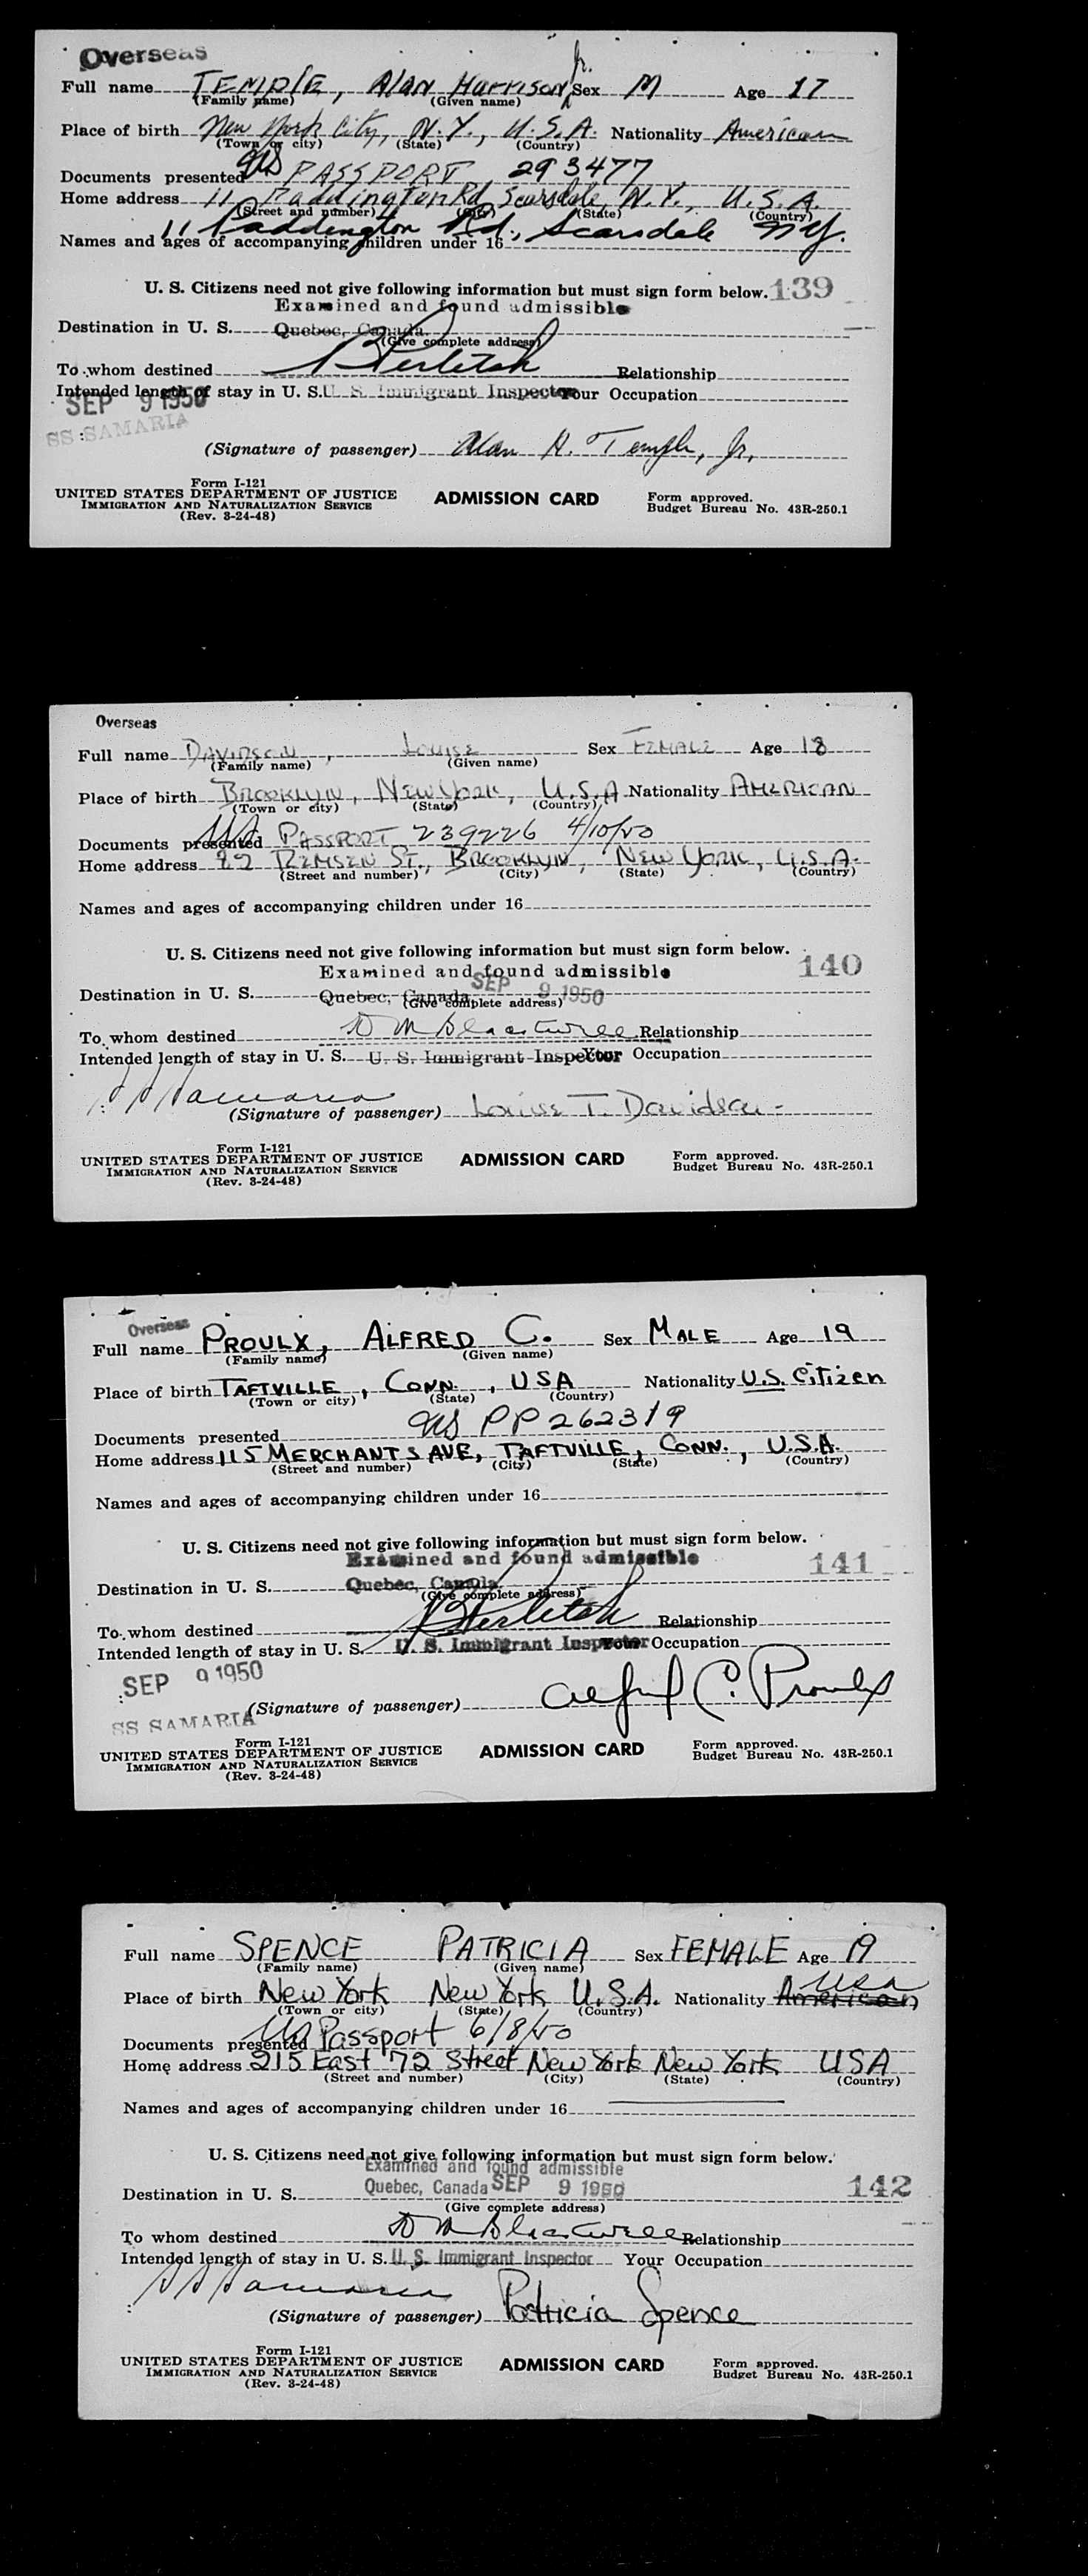 Overseas
Jr.
Full name TEMPLE, Alan Harrison Sex M Age 17
(Family name) (Given name)
Place of birth New York City, N.Y., U.S.A. Nationality American
(Town or city) (State) (Country)
Documents presented US PASSPORT 293477
Home address 11 Paddington Rd, Scarsdale, N.Y., U.S.A.
(Street and number) (City) (State) (Country)
11 Paddington Rd., Scarsdale N.Y.
Names and ages of accompanying children under 16
U. S. Citizens need not give following information but must sign form below. 139
Examined and found admissible
Destination in U. S. Quebec, Canada
(Give complete address)
To whom destined Relationship
Intended length of stay in U. S. U. S. Immigrant Inspector Your Occupation
SEP 9 1950
SS SAMARIA
(Signature of passenger) Alan H. Temple, Jr.
Form I-121
UNITED STATES DEPARTMENT OF JUSTICE ADMISSION CARD Form approved.
IMMIGRATION AND NATURALIZATION SERVICE Budget Bureau No. 43R-250.1
(Rev. 3-24-48)
Overseas
Full name DAVIDSON, LOUISE Sex FEMALE Age 18
(Family name) (Given name)
Place of birth BROOKLYN, NEW YORK, U.S.A Nationality AMERICAN
(Town or city) (State) (Country)
Documents presented US PASSPORT 239226 4/10/50
Home address 82 REMSEN ST., BROOKLYN, NEW YORK, U.S.A.
(Street and number) (City) (State) (Country)
Names and ages of accompanying children under 16
U. S. Citizens need not give following information but must sign form below. 140
Examined and found admissible
SEP 9 1950
Destination in U. S. Quebec, Canada
(Give complete address)
To whom destined Relationship
Intended length of stay in U. S. U. S. Immigrant Inspector Your Occupation
SS Samaria
(Signature of passenger) Louise T. Davidson
Form I-121
UNITED STATES DEPARTMENT OF JUSTICE ADMISSION CARD Form approved.
IMMIGRATION AND NATURALIZATION SERVICE Budget Bureau No. 43R-250.1
(Rev. 3-24-48)
Overseas
Full name PROULX, ALFRED C. Sex MALE Age 19
(Family name) (Given name)
Place of birth TAFTVILLE, CONN., USA Nationality U.S. Citizen
(Town or city) (State) (Country)
Documents presented US PP 262319
Home address 115 MERCHANTS AVE, TAFTVILLE, CONN., U.S.A.
(Street and number) (City) (State) (Country)
Names and ages of accompanying children under 16
U. S. Citizens need not give following information but must sign form below.
Examined and found admissible 141
Destination in U. S. Quebec, Canada
(Give complete address)
To whom destined Relationship
Intended length of stay in U. S. U. S. Immigrant Inspector Your Occupation
SEP 9 1950
(Signature of passenger) Alfred C. Proulx
SS SAMARIA
Form I-121
UNITED STATES DEPARTMENT OF JUSTICE ADMISSION CARD Form approved.
IMMIGRATION AND NATURALIZATION SERVICE Budget Bureau No. 43R-250.1
(Rev. 3-24-48)
Full name SPENCE PATRICIA Sex FEMALE Age 19
(Family name) (Given name)
USA
Place of birth New York New York U.S.A. Nationality American
(Town or city) (State) (Country)
Documents presented US Passport 6/8/50
Home address 215 East 72 Street New York New York USA
(Street and number) (City) (State) (Country)
Names and ages of accompanying children under 16
U. S. Citizens need not give following information but must sign form below.
Examined and found admissible
Destination in U. S. Quebec, Canada SEP 9 1950 142
(Give complete address)
To whom destined Relationship
Intended length of stay in U. S. U. S. Immigrant Inspector Your Occupation
SS Samaria
(Signature of passenger) Patricia Spence
Form I-121
UNITED STATES DEPARTMENT OF JUSTICE ADMISSION CARD Form approved.
IMMIGRATION AND NATURALIZATION SERVICE Budget Bureau No. 43R-250.1
(Rev. 3-24-48)